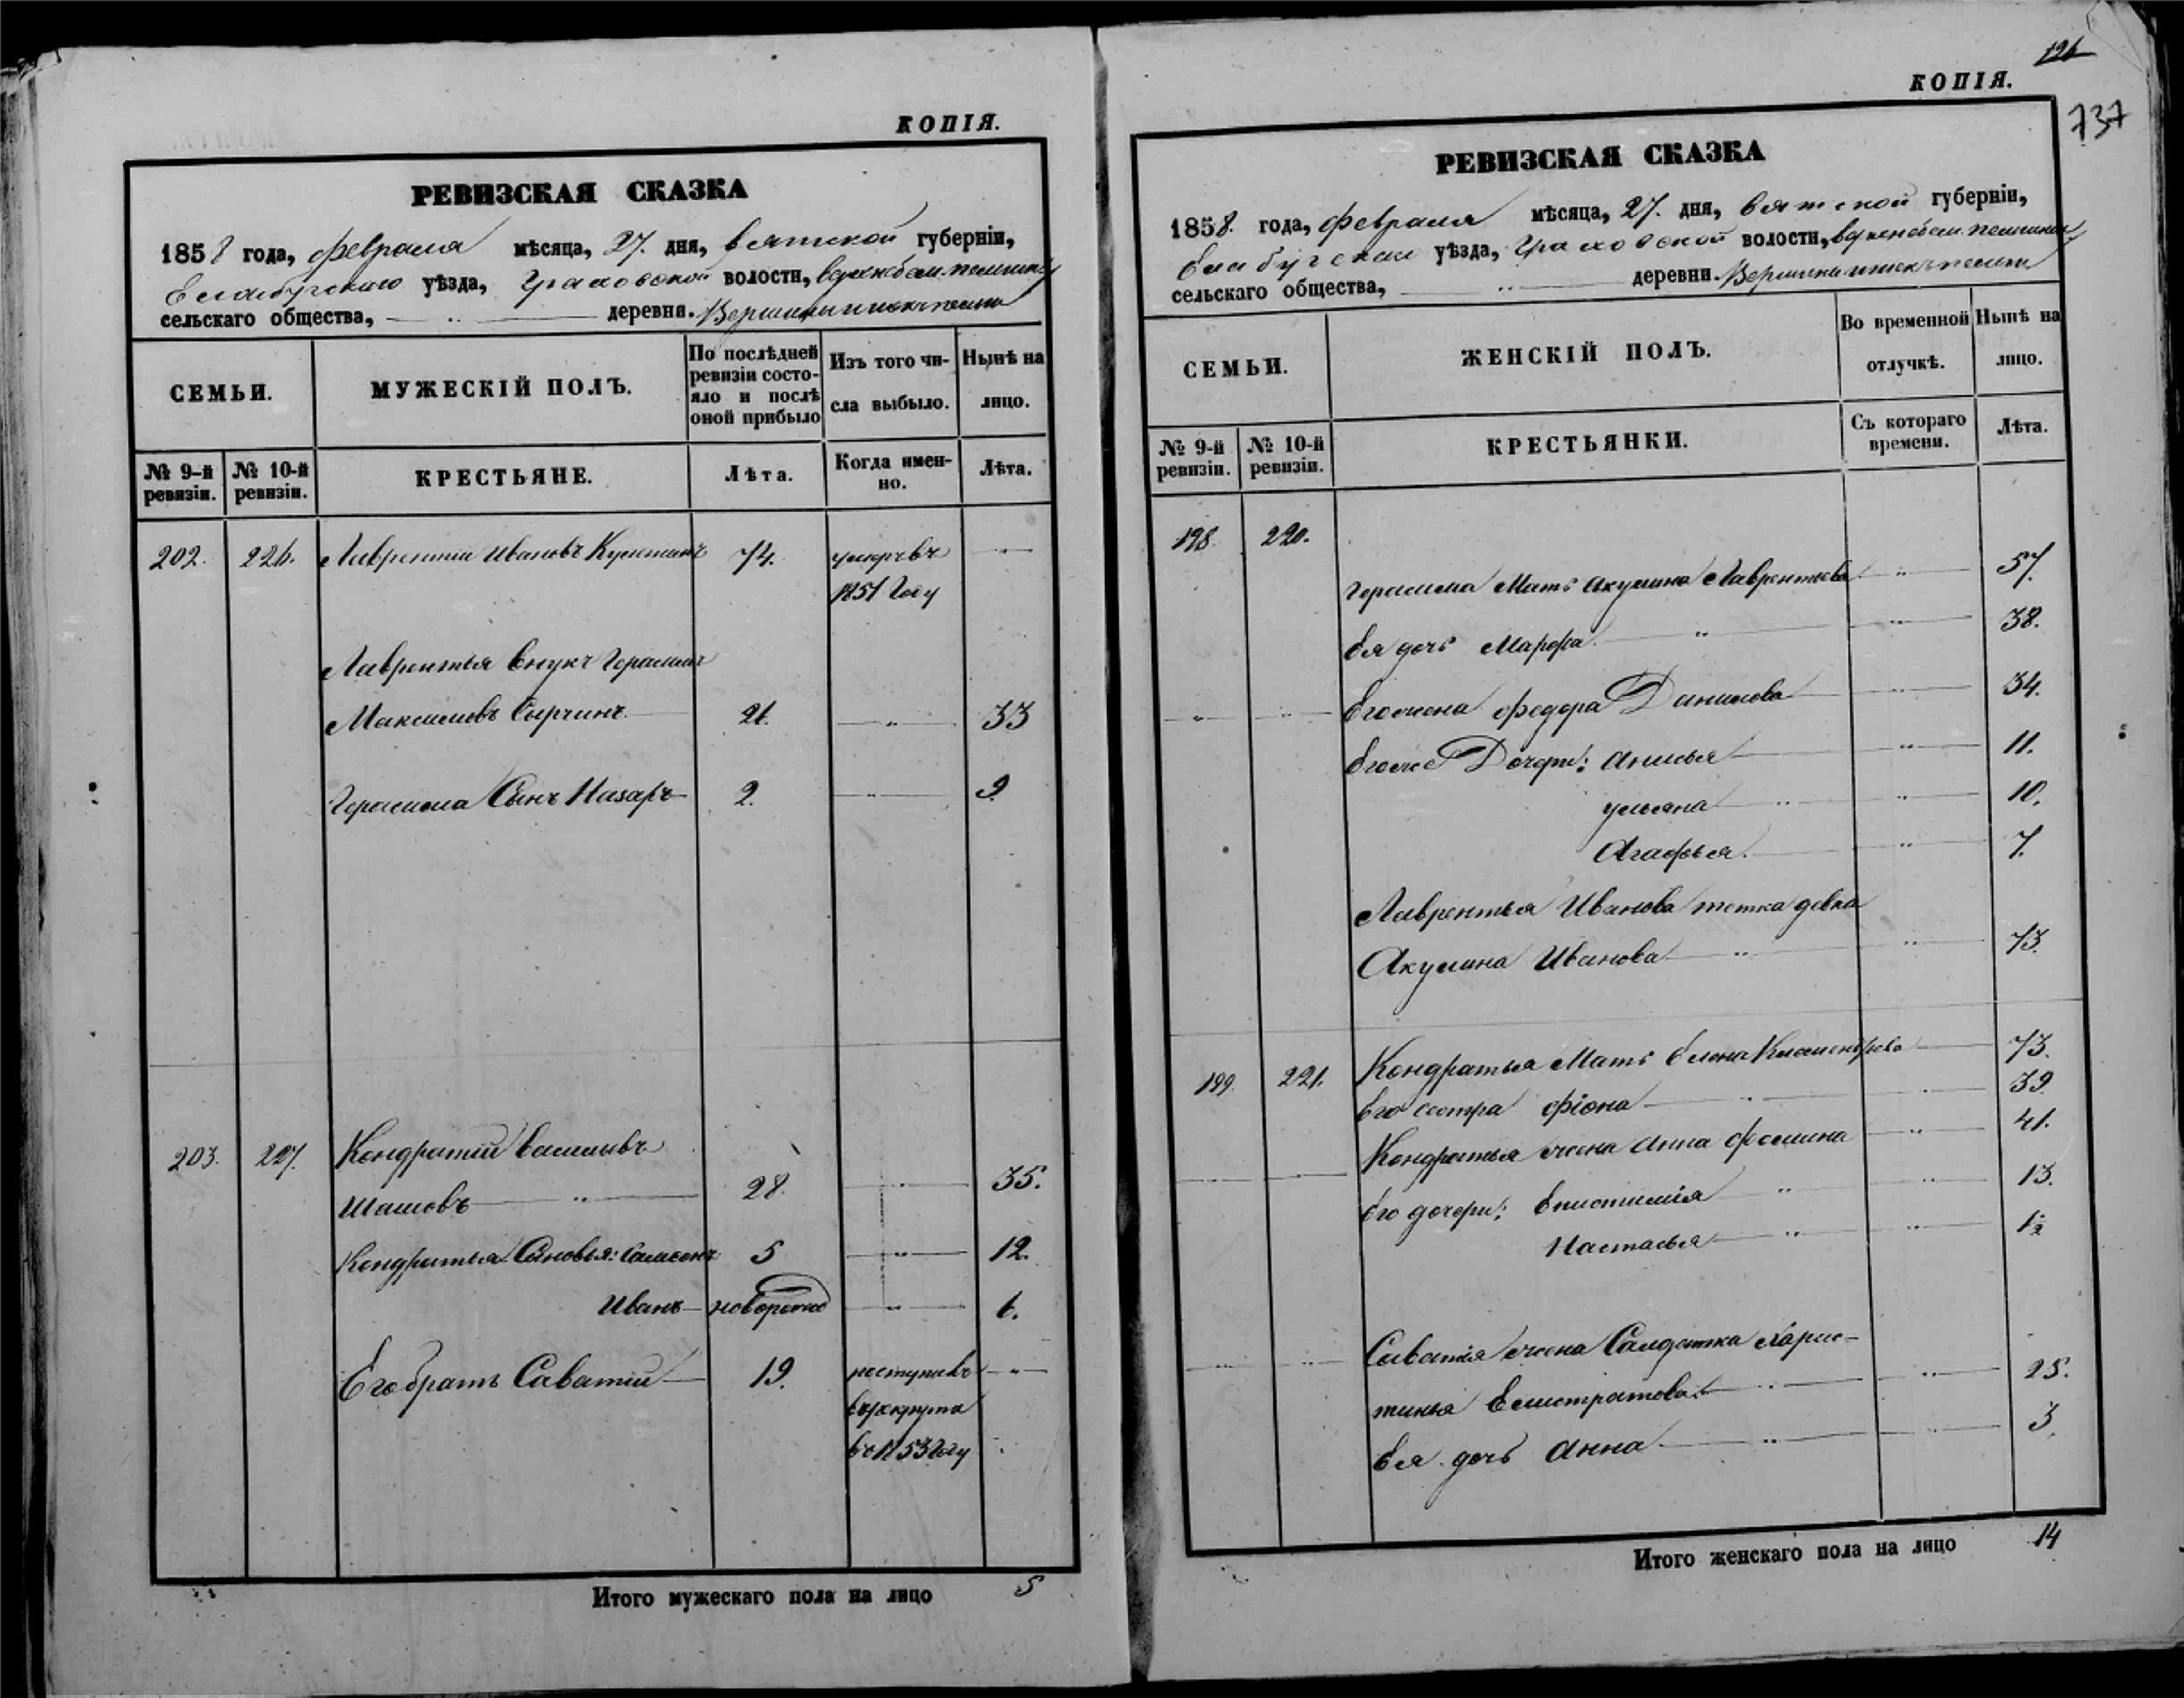 КОПІЯ.
РЕВИЗСКАЯ СКАЗКА
1858 года, февраля мѣсяца, 27. дня, Вятской губерніи,
Елабугскаго уѣзда, Граховской волости,
сельскаго общества, — „ — деревни.
СЕМЬИ.
МУЖЕСКІЙ ПОЛЪ.
По послѣдней
ревизіи состо-
яло и послѣ
оной прибыло
Изъ того чи-
сла выбыло.
Нынѣ на
лицо.
№ 9-й
ревизіи.
№ 10-й
ревизіи.
КРЕСТЬЯНЕ.
Лѣта.
Когда имен-
но.
Лѣта.
202. 226. Лаврентій Ивановъ 74. умеръ въ —
1851 Году
Лаврентья внукъ Герасимъ
Максимовъ Сырчинъ — 26. — „ — 33
Герасима Сынъ Назаръ — 2. — „ — 9.
203. 227. Кондратій Васильевъ
Шашовъ — „ — 28. — „ — 35.
Кондратья Сыновья: Самсонъ 5 — „ — 12.
Иванъ — новорожден — „ — 6.
Его братъ Саватій — 19. поступилъ — „ —
в рекрута
в 1853 Году
Итого мужескаго пола на лицо 5
126
КОПІЯ.
737
РЕВИЗСКАЯ СКАЗКА
1858. года, февраля мѣсяца, 27. дня, Вятской губерніи,
Елабугскаго уѣзда, Граховской волости,
сельскаго общества, — „ — деревни.
СЕМЬИ.
ЖЕНСКІЙ ПОЛЪ.
Во временной
отлучкѣ.
Нынѣ на
лицо.
№ 9-й
ревизіи.
№ 10-й
ревизіи.
КРЕСТЬЯНКИ.
Съ котораго
времени.
Лѣта.
198. 220.
Герасима Мать Акулина Лаврентьева — „ — 57.
Ея дочь Марфа. — „ — „ — 38.
— „ — „ — Его жена Федора Данилова — „ — 34.
Его же Дочери: Анисья — „ — 11.
Ульяна — „ — „ — 10.
Агафья. — „ — 7.
Лаврентья Иванова тетка девка
Акулина Иванова — „ — „ — 73.
199. 221. Кондратья Мать Елена — 73.
Его сестра Фіона — „ — „ — 39
Кондратья жена Анна Фомина — „ — 41.
Его дочери: Епистимія „ — „ — 13.
Настасья — „ — „ — 1½
— „ — „ — Саватія жена Салдатка Харис-
тинья Елистратова. — „ — „ — 25.
Ея дочь Анна — „ — „ — 3.
Итого женскаго пола на лицо 14